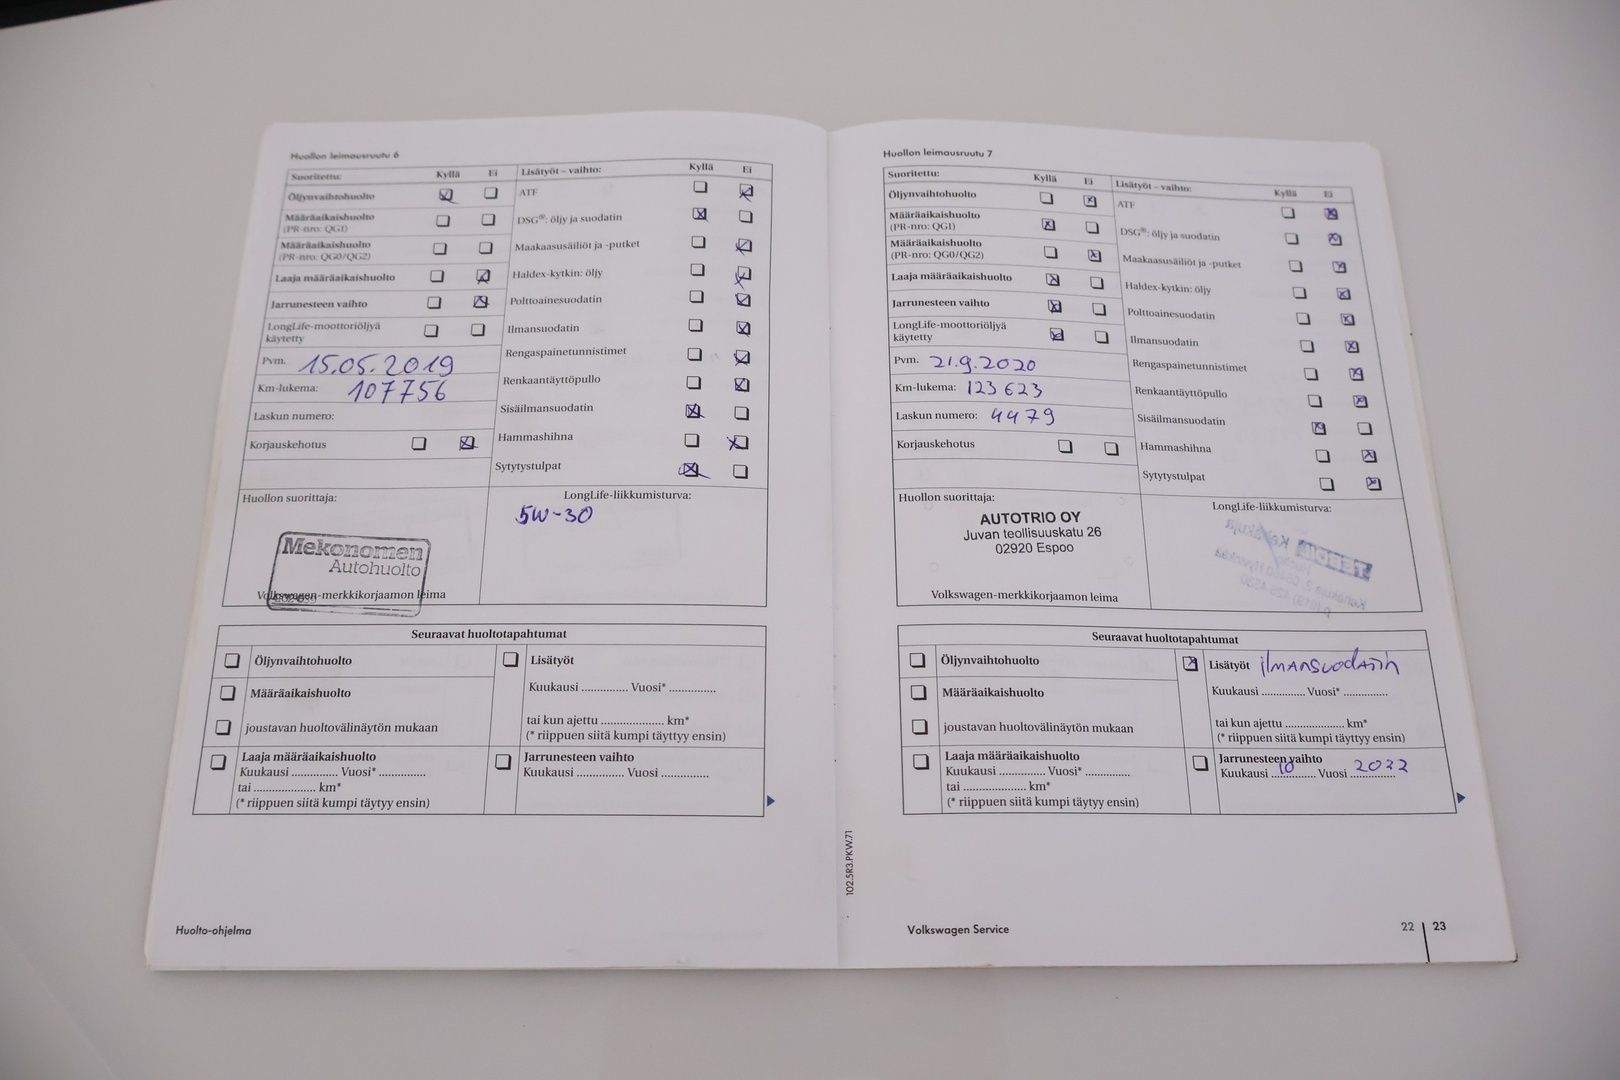 Huollon leimausruutu 6
Suoritettu: Kyllä Ei
Öljynvaihtohuolto
Määräaikaishuolto
(PR-nro: QG1)
Määräaikaishuolto
(PR-nro: QG0/QG2)
Laaja määräaikaishuolto
Jarrunesteen vaihto
LongLife-moottoriöljyä
käytetty
Pvm. 15.05.2019
Km-lukema: 107756
Laskun numero:
Korjauskehotus
Lisätyöt – vaihto: Kyllä Ei
ATF
DSG®: öljy ja suodatin
Maakaasusäiliöt ja -putket
Haldex-kytkin: öljy
Polttoainesuodatin
Ilmansuodatin
Rengaspainetunnistimet
Renkaantäyttöpullo
Sisäilmansuodatin
Hammashihna
Sytytystulpat
Huollon suorittaja:
Mekonomen
Autohuolto
Volkswagen-merkkikorjaamon leima
LongLife-liikkumisturva:
5W-30
Seuraavat huoltotapahtumat
Öljynvaihtohuolto
Määräaikaishuolto
joustavan huoltovälinäytön mukaan
Laaja määräaikaishuolto
Kuukausi .............. Vuosi* ..............
tai .................... km*
(* riippuen siitä kumpi täytyy ensin)
Lisätyöt
Kuukausi .............. Vuosi* ..............
tai kun ajettu .................... km*
(* riippuen siitä kumpi täyttyy ensin)
Jarrunesteen vaihto
Kuukausi .............. Vuosi ..............
Huolto-ohjelma
Huollon leimausruutu 7
Suoritettu: Kyllä Ei
Öljynvaihtohuolto
Määräaikaishuolto
(PR-nro: QG1)
Määräaikaishuolto
(PR-nro: QG0/QG2)
Laaja määräaikaishuolto
Jarrunesteen vaihto
LongLife-moottoriöljyä
käytetty
Pvm. 21.9.2020
Km-lukema: 123 623
Laskun numero: 4479
Korjauskehotus
Lisätyöt – vaihto: Kyllä Ei
ATF
DSG®: öljy ja suodatin
Maakaasusäiliöt ja -putket
Haldex-kytkin: öljy
Polttoainesuodatin
Ilmansuodatin
Rengaspainetunnistimet
Renkaantäyttöpullo
Sisäilmansuodatin
Hammashihna
Sytytystulpat
Huollon suorittaja:
AUTOTRIO OY
Juvan teollisuuskatu 26
02920 Espoo
Volkswagen-merkkikorjaamon leima
LongLife-liikkumisturva:
Seuraavat huoltotapahtumat
Öljynvaihtohuolto
Määräaikaishuolto
joustavan huoltovälinäytön mukaan
Laaja määräaikaishuolto
Kuukausi .............. Vuosi* ..............
tai .................... km*
(* riippuen siitä kumpi täytyy ensin)
Lisätyöt ilmansuodatin
Kuukausi .............. Vuosi* ..............
tai kun ajettu .................... km*
(* riippuen siitä kumpi täyttyy ensin)
Jarrunesteen vaihto
Kuukausi 10 Vuosi 2022
102.5R3.PKW.71
Volkswagen Service
22 23